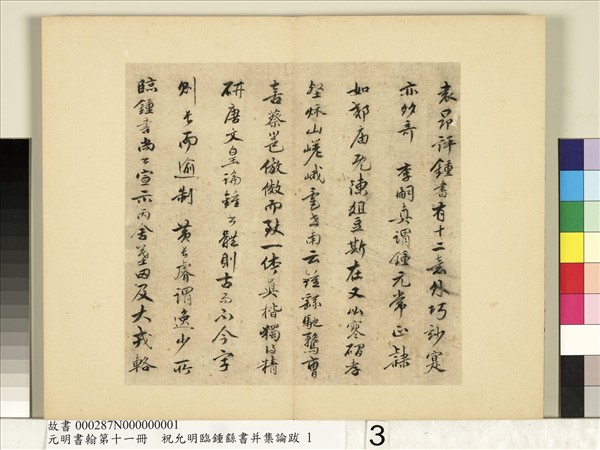 袁昂評鍾書有十二意外巧妙寔
亦多奇 李嗣真謂鍾元常正隸
如郊廟既陳俎豆斯在又比寒磵
壑秋山嵯峨 南云鍾繇馳騖曹
喜蔡邕倣傚而致一体真楷獨得精
研唐文皇論鍾公體則古而不今字
則長而逾制 黃長睿謂逸少所
臨鍾書尚書宣示丙舍墓田及大戎輅
故書 000287N000000001
元明書翰第十一冊 祝允明臨鍾繇書并集論跋 1
3